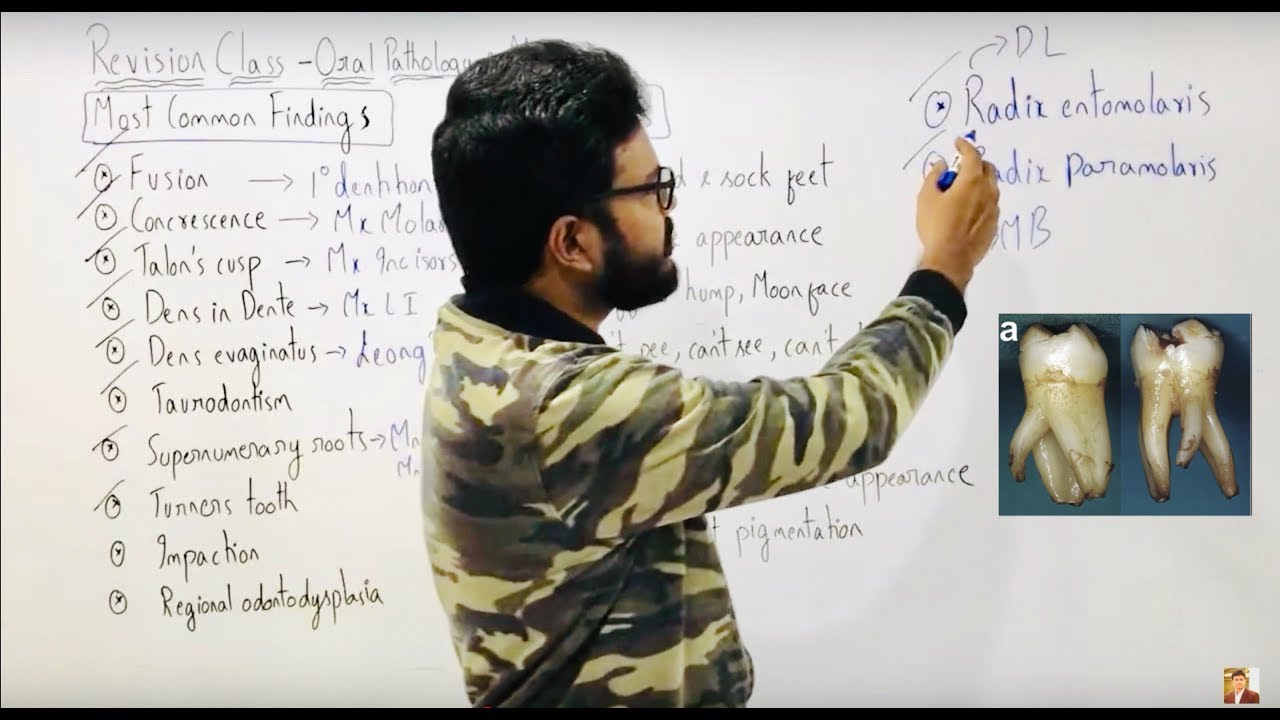 Revision Class - Oral Pathology
Most Common Findings
Fusion → 1° dentition
Concrescence → Mx Molar
Talon's cusp → Mx Incisors
Dens in Dente → Mx LI
Dens evaginatus → Leong
Taurodontism
Supernumerary roots → Mn
Mn
Turners tooth
Impaction
Regional odontodysplasia
sock feet
appearance
hump, Moonface
see, can't see, can't
appearance
pigmentation
DL
Radix entomolaris
Radix paramolaris
MB
a